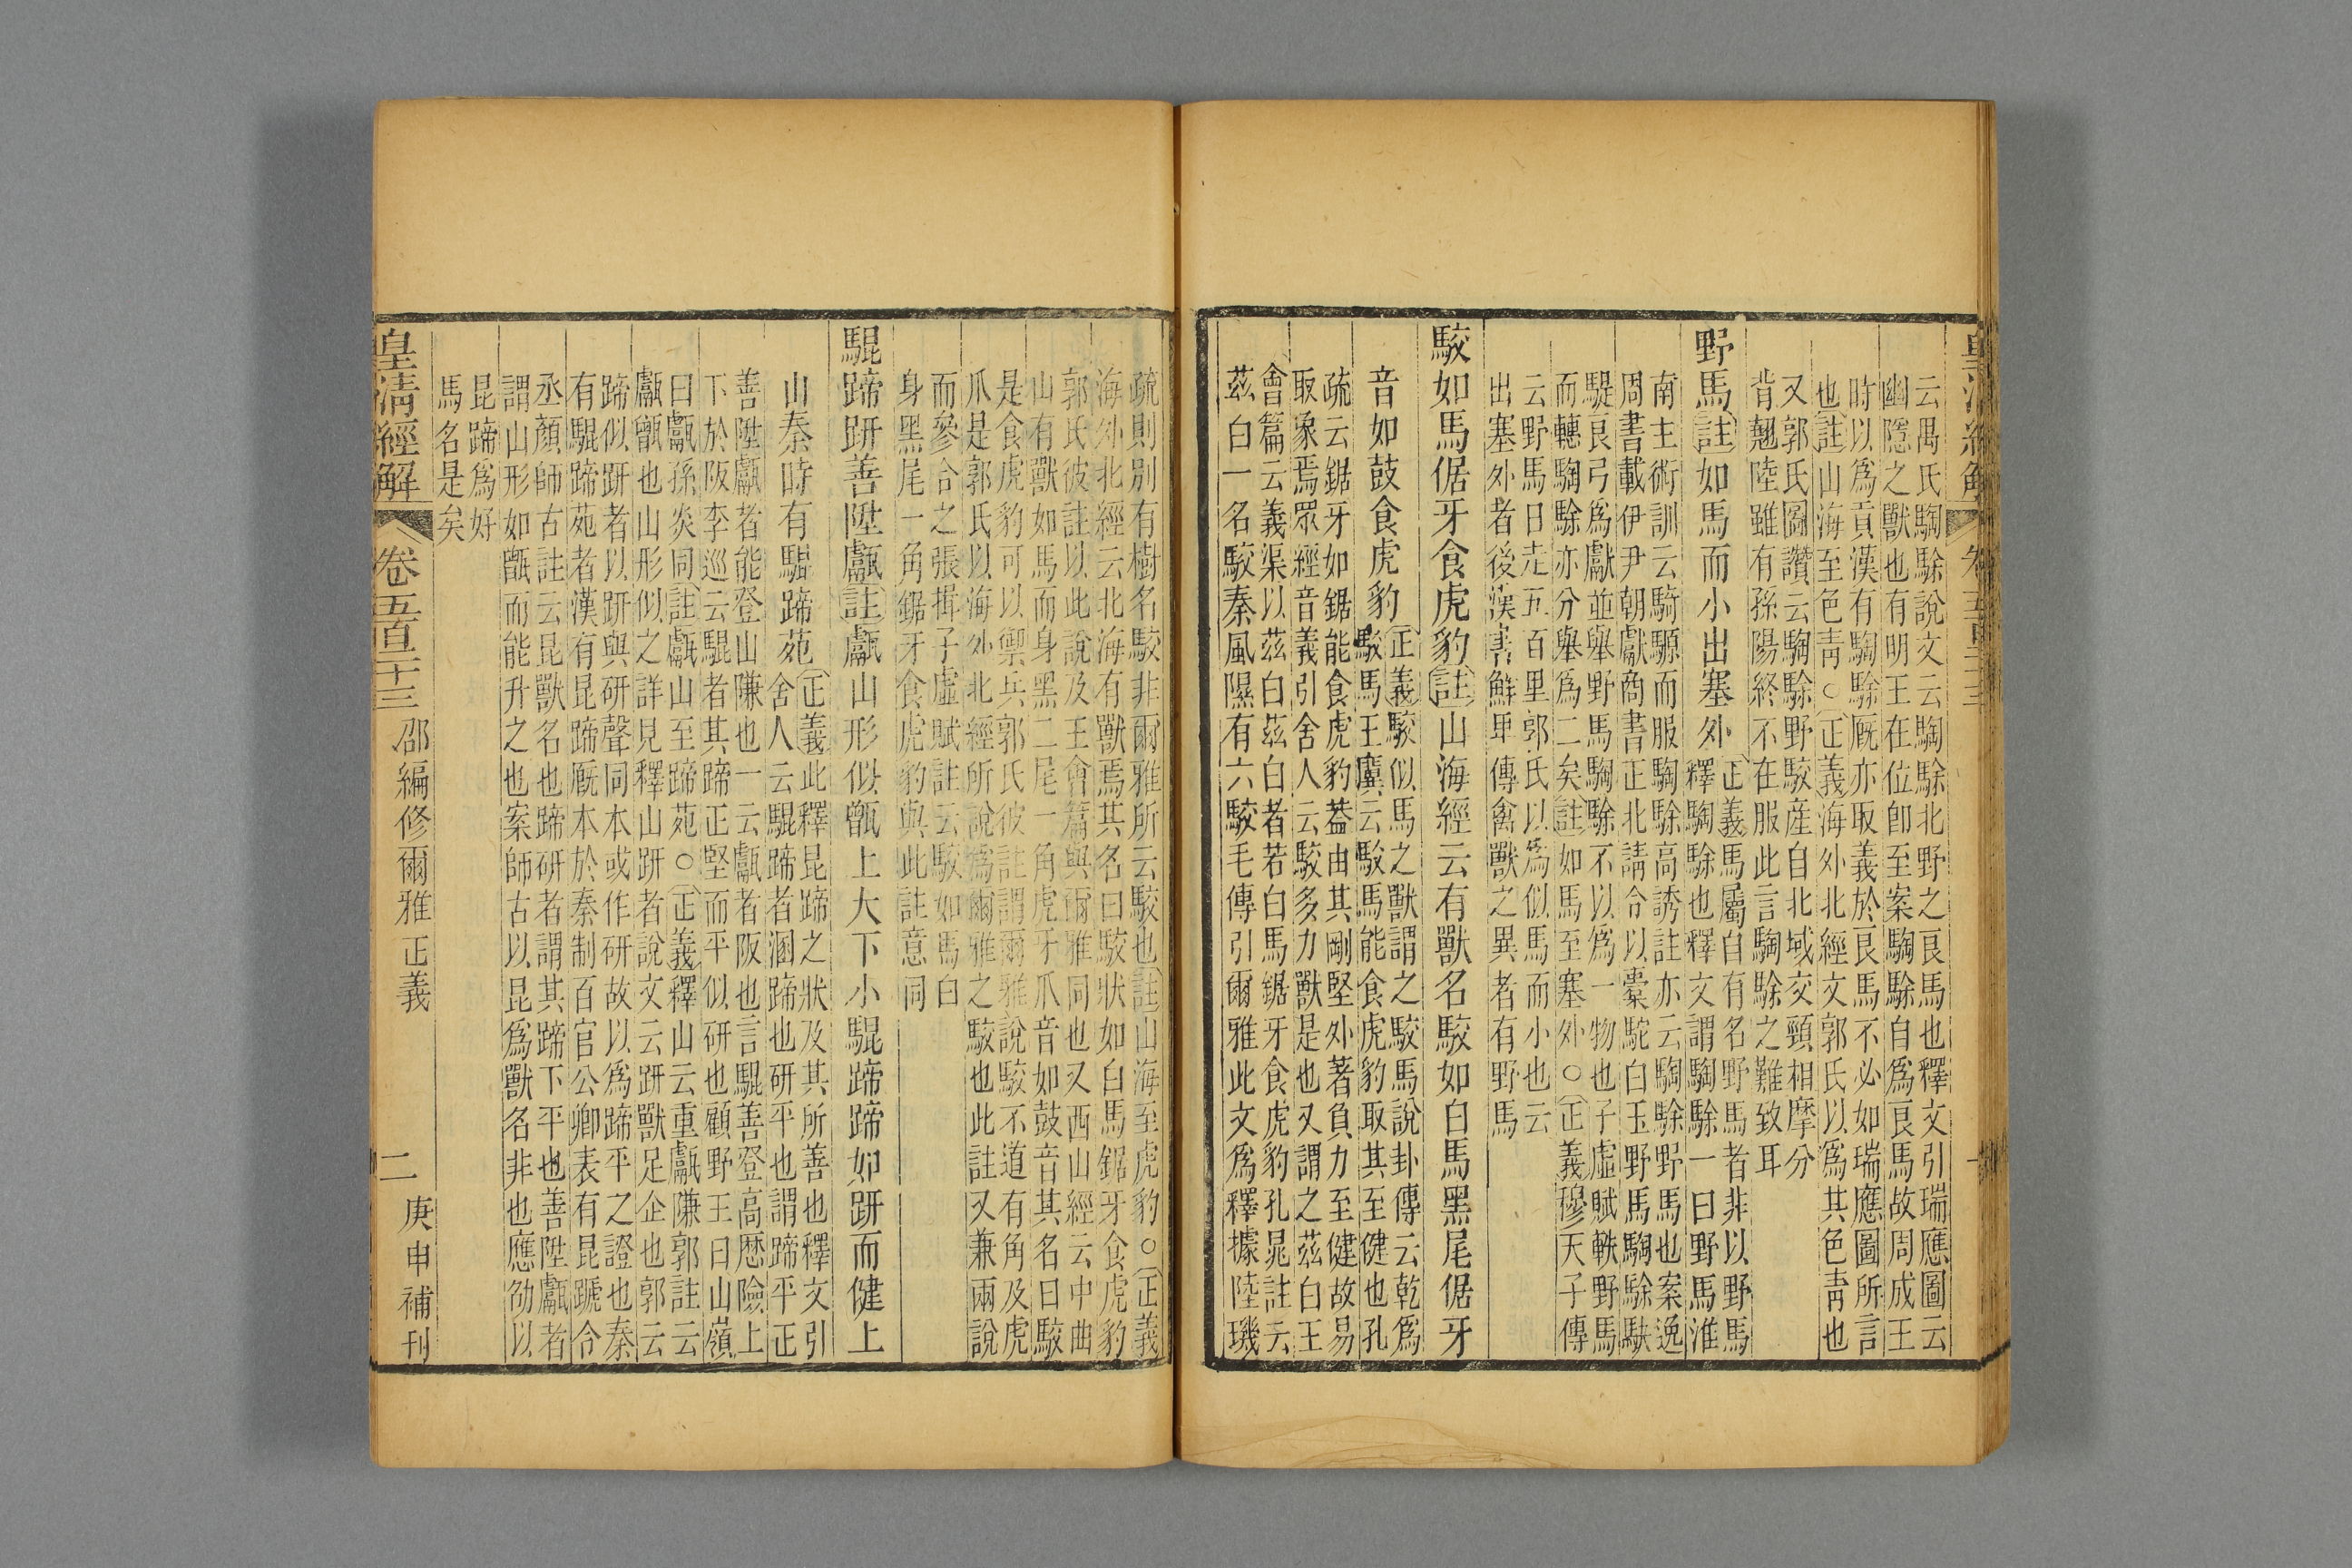 云禺氏騊駼說文云騊駼北野之良馬也釋文引瑞應圖云
幽隱之獸也有明王在位卽至案騊駼自爲良馬故周成王
時以爲貢漢有騊駼厩亦取義於良馬不必如瑞應圖所言
也註山海至色靑○正義海外北經文郭氏以爲其色靑也
又郭氏圖讚云騊駼野駮產自北域交頸相摩分
背翹陸雖有孫陽終不在服此言騊駼之難致耳
野馬註如馬而小出塞外
正義馬屬自有名野馬者非以野馬
釋騊駼也釋文謂騊駼一曰野馬淮
南主術訓云騎騵而服騊駼高誘註亦云騊駼野馬也案逸
周書載伊尹朝獻商書正北請令以橐駝白玉野馬騊駼駃
騠良弓爲獻並舉野馬騊駼不以爲一物也子虛賦軼野馬
而轊騊駼亦分舉爲二矣註如馬至塞外○正義穆天子傳
云野馬日走五百里郭氏以爲似馬而小也云
出塞外者後漢書鮮卑傳禽獸之異者有野馬
駮如馬倨牙食虎豹註山海經云有獸名駮如白馬黑尾倨牙
音如鼓食虎豹
正義駮似馬之獸謂之駮馬說卦傳云乾爲
駮馬王廙云駮馬能食虎豹取其至健也孔
疏云鋸牙如鋸能食虎豹葢由其剛堅外著負力至健故易
取象焉眾經音義引舍人云駮多力獸是也又謂之茲白王
會篇云義渠以茲白茲白者若白馬鋸牙食虎豹孔晁註云
茲白一名駮秦風隰有六駮毛傳引爾雅此文爲釋據陸璣
疏則別有樹名駮非爾雅所云駮也註山海至虎豹○正義
海外北經云北海有獸焉其名曰駮狀如白馬鋸牙食虎豹
郭氏彼註以此說及王會篇與爾雅同也又西山經云中曲
山有獸如馬而身黑二尾一角虎牙爪音如鼓音其名曰駮
是食虎豹可以禦兵郭氏彼註謂爾雅說駮不道有角及虎
爪是郭氏以海外北經所說爲爾雅之駮也此註又兼兩說
而參合之張揖子虛賦註云駮如馬白
身黑尾一角鋸牙食虎豹與此註意同
騉蹄趼善陞甗註甗山形似甑上大下小騉蹄蹄如趼而健上
山秦時有騉蹄苑
正義此釋昆蹄之狀及其所善也釋文引
舍人云騉蹄者溷蹄也研平也謂蹄平正
善陞甗者能登山隒也一云甗者阪也言騉善登高歷險上
下於阪李巡云騉者其蹄正堅而平似研也顧野王曰山嶺
曰甗孫炎同註甗山至蹄苑○正義釋山云重甗隒郭註云
甗甑也山形似之詳見釋山趼者說文云趼獸足企也郭云
蹄似趼者以趼與研聲同本或作研故以爲蹄平之證也秦
有騉蹄苑者漢有昆蹄厩本於秦制百官公卿表有昆蹏令
丞顏師古註云昆獸名也蹄研者謂其蹄下平也善陞甗者
謂山形如甑而能升之也案師古以昆爲獸名非也應劭以
昆蹄爲好
馬名是矣
皇清經解
卷五百二十三
邵編修爾雅正義
二
庚申補刊